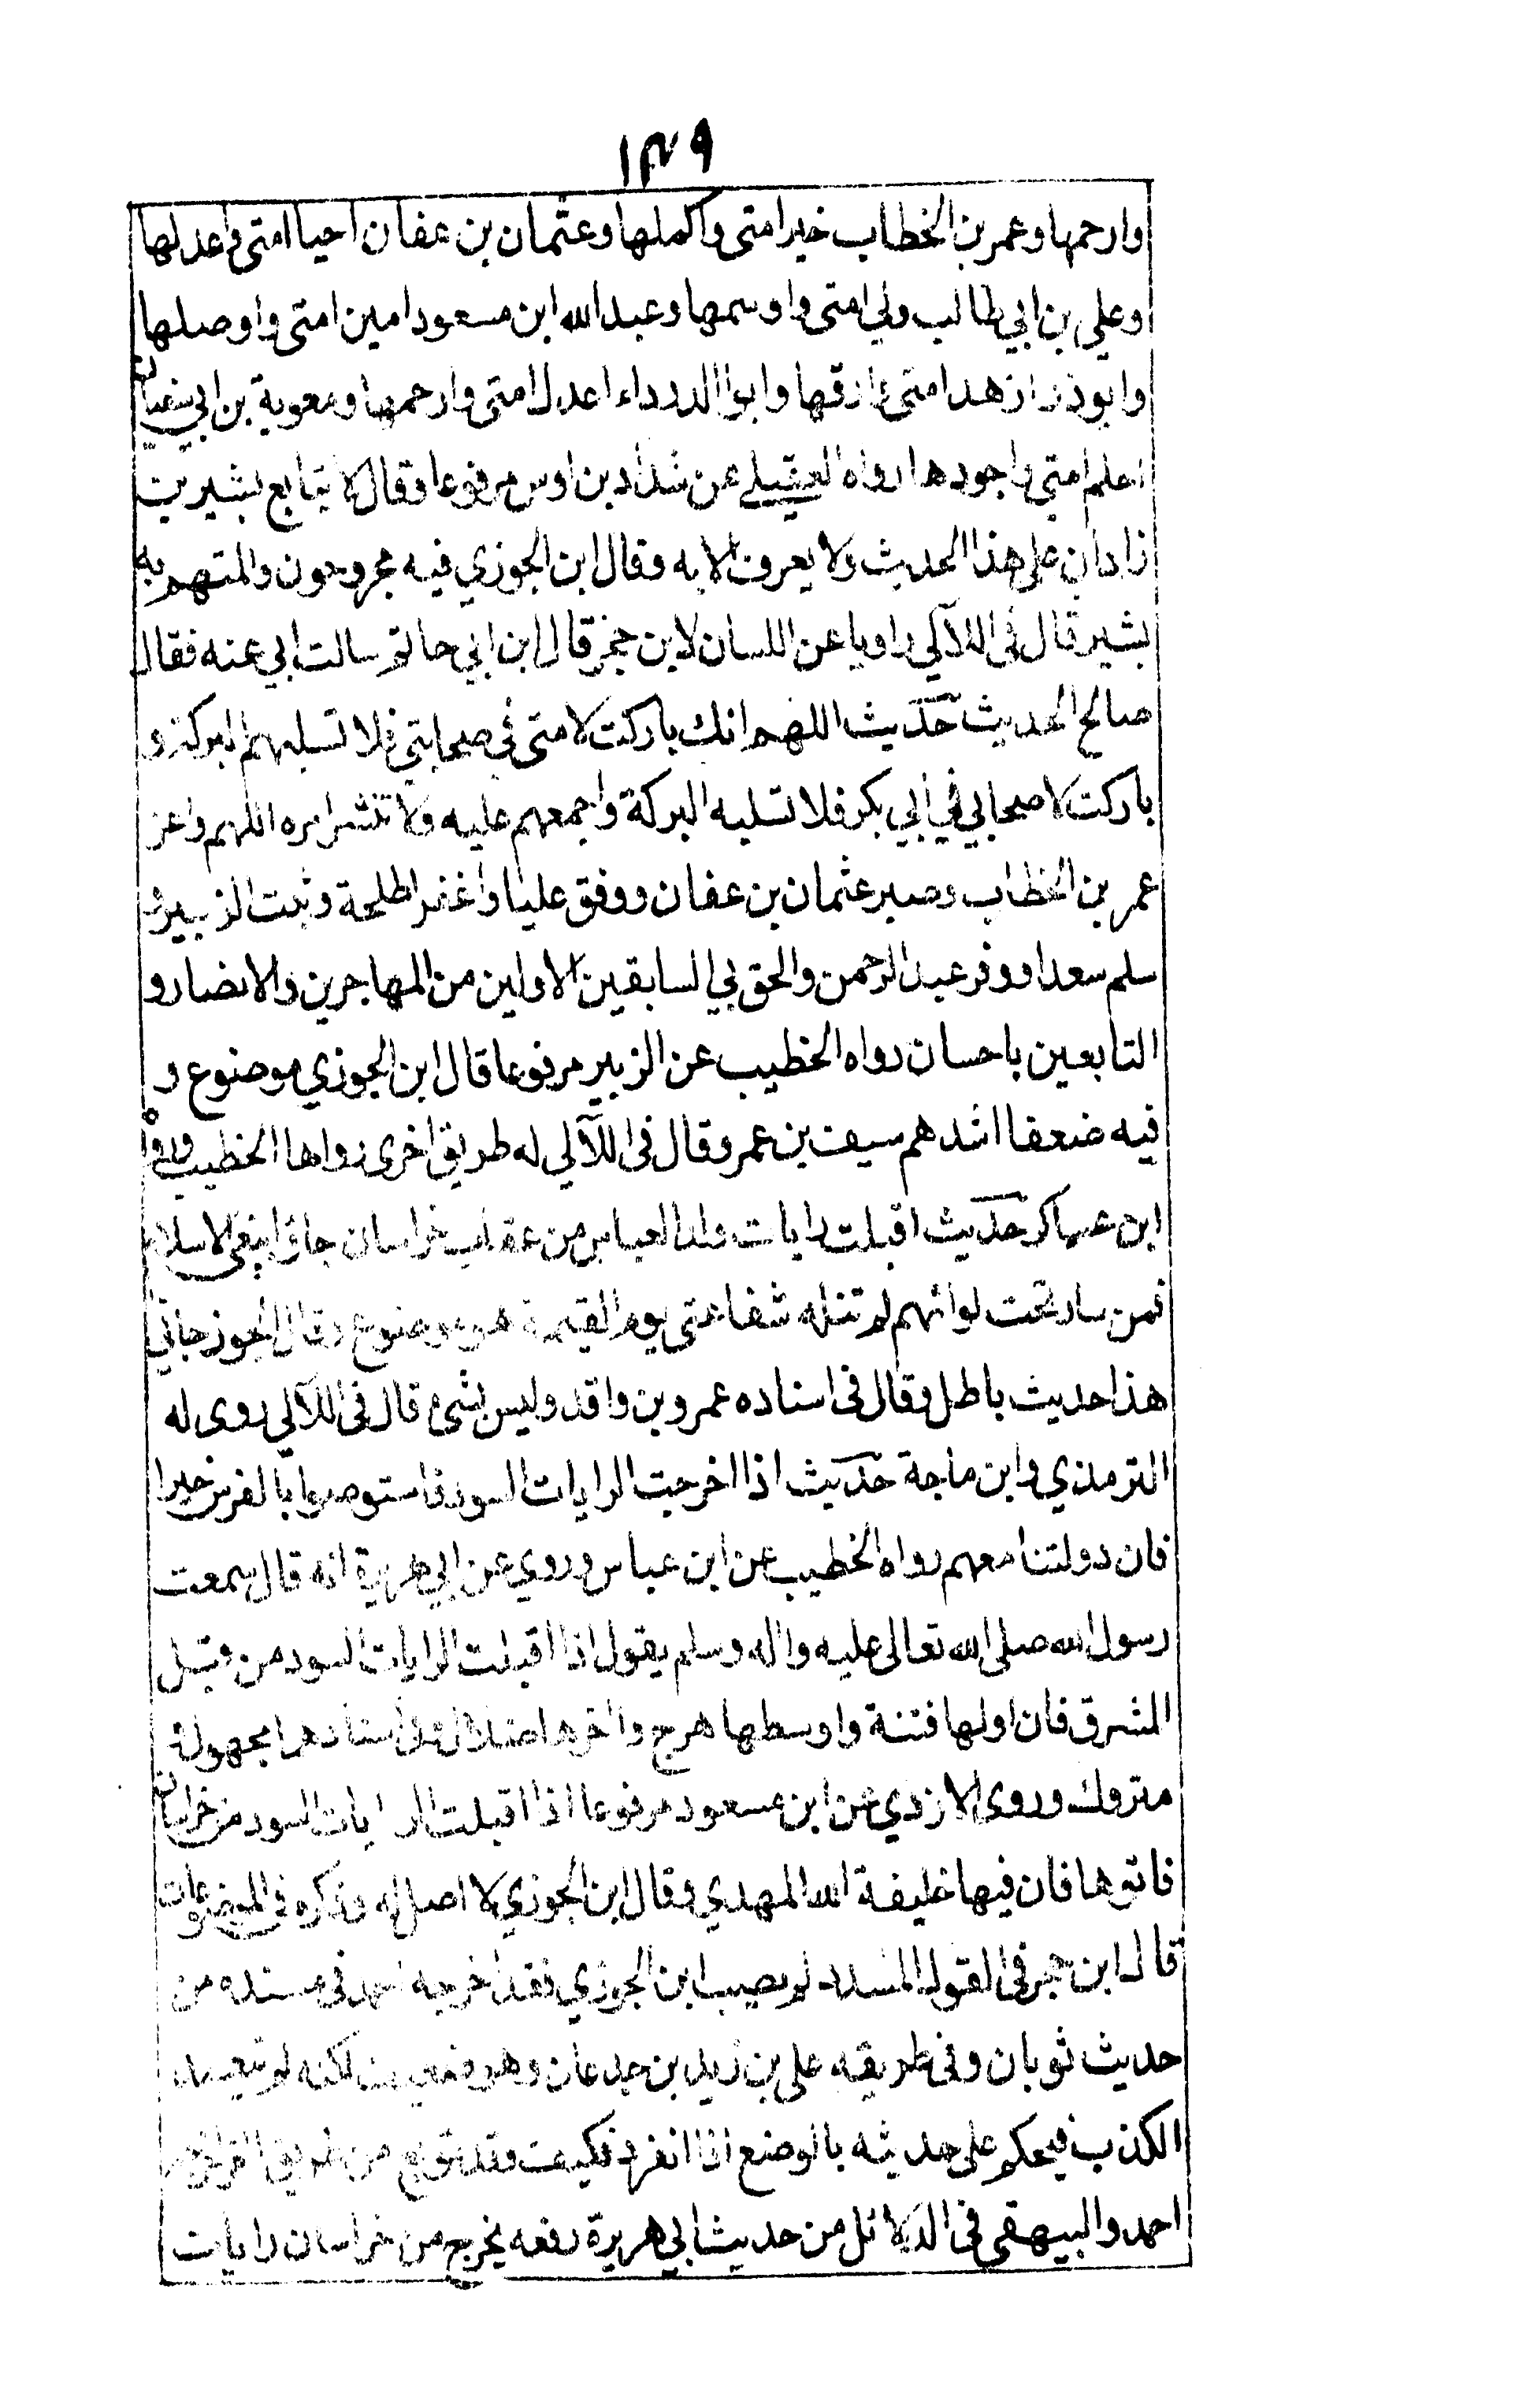 ١٣٩
وارحمها وعمر بن الخطاب خير امتى واكملها وعثمان بن عفان احيا امتى واعدلها
وعلي بن ابي طالب ولي امتى واوسمها وعبدالله ابن مسعود امين امتى واوصلها
وابوذر ازهد امتى وارقها وابوا الدرداء اعدل امتى وارحمها ومعوية بن ابي سفيان
احلم امتى واجودها رواه العقيلے عن شداد بن اوس مرفوعا وقال لا يتابع بشير بن
زادان على هذا الحديث ولا يعرف الا به وقال ابن الجوزي فيه مجروحون والمتهم به
بشير قال فى اللآلي راويا عن اللسان لابن حجر قال ابن ابي حاتم سالت ابي عنه فقال
صالح الحديث حديث اللهم انك باركت لامتى في صحابتي فلا تسلبهم البركة و
باركت لاصحابي في ابي بكر فلا تسلبه البركة واجمعهم عليه ولا تنثر امره اللهم واعز
عمر بن الخطاب وصبر عثمان بن عفان ووفق عليا واغفر لطلحة وثبت الزبير و
سلم سعدا ووفر عبد الرحمن والحق بي السابقين الاولين من المهاجرين والانصار و
التابعين باحسان رواه الخطيب عن الزبير مرفوعا قال ابن الجوزي موضوع و
فيه ضعفا اشدهم سيف بن عمر وقال فى اللآلي له طريق اخرى رواها الخطيب ورواه
ابن عساكر حديث اقبلت رايات ولد العباس من عقاب خراسان جاؤا بنعى الاسلام
فمن سار تحت لوائهم لم تنله شفاعتى يوم القيمة هو موضوع وقال الجوزجاني
هذا حديث باطل وقال فى اسناده عمرو بن واقد وليس بشئ قال فى اللآلي روى له
الترمذي وابن ماجة حديث اذا اخرجت الرايات السود فاستوصوا بالفرس خيرا
فان دولتنا معهم رواه الخطيب عن ابن عباس وروي عن ابي هريرة انه قال سمعت
رسول الله صلى الله تعالى عليه واله وسلم يقول اذا اقبلت الرايات السود من قبل
المشرق فان اولها فتنة واوسطها هرج واخرها ضلالة وفى اسنادهما مجهول و
متروك وروى الازدي عن ابن مسعود مرفوعا اذا اقبلت الرايات السود من خراسان
فاتوها فان فيها خليفة الله المهدي وقال ابن الجوزي لا اصل له وذكره في الموضوعات
قال ابن حجر فى القول المسدد لم يصب ابن الجوزي فقد اخرجه احمد فى مسنده من
حديث ثوبان وفى طريقه على بن زيد بن جدعان وهو ضعيف لكنه لم يتعمد
الكذب فيحكم على حديثه بالوضع اذا انفرد فكيف وقد توبع من طريق اخرى اخرجه
احمد والبيهقي فى الدلائل من حديث ابي هريرة رفعه يخرج من خراسان رايات